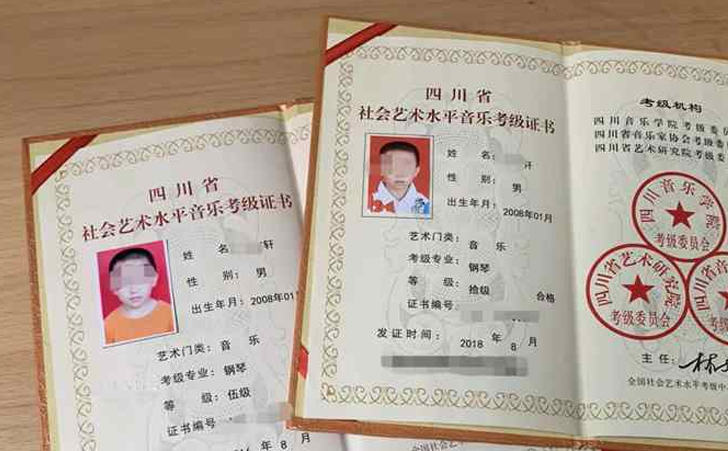 四川省
社会艺术水平音乐考级证书
姓 名: 轩
性 别: 男
出生年月: 2008年01
艺术门类: 音 乐
考级专业: 钢琴
等 级: 伍级
证书编号
年 8 月
四川省
社会艺术水平音乐考级证书
姓 名: 轩
性 别: 男
出生年月: 2008年01月
艺术门类: 音 乐
考级专业: 钢琴
等 级: 拾级 合格
证书编号:
发证时间: 2018 年 8 月
考级机构
四川音乐学院考级委
四川省音乐家协会考级委
四川省艺术研究院考级
四川音乐学院
考级委员会
四川省艺术研究院
考级委员会
四川省音
考级
主任:
全国社会艺术水平考级中
全国社会艺